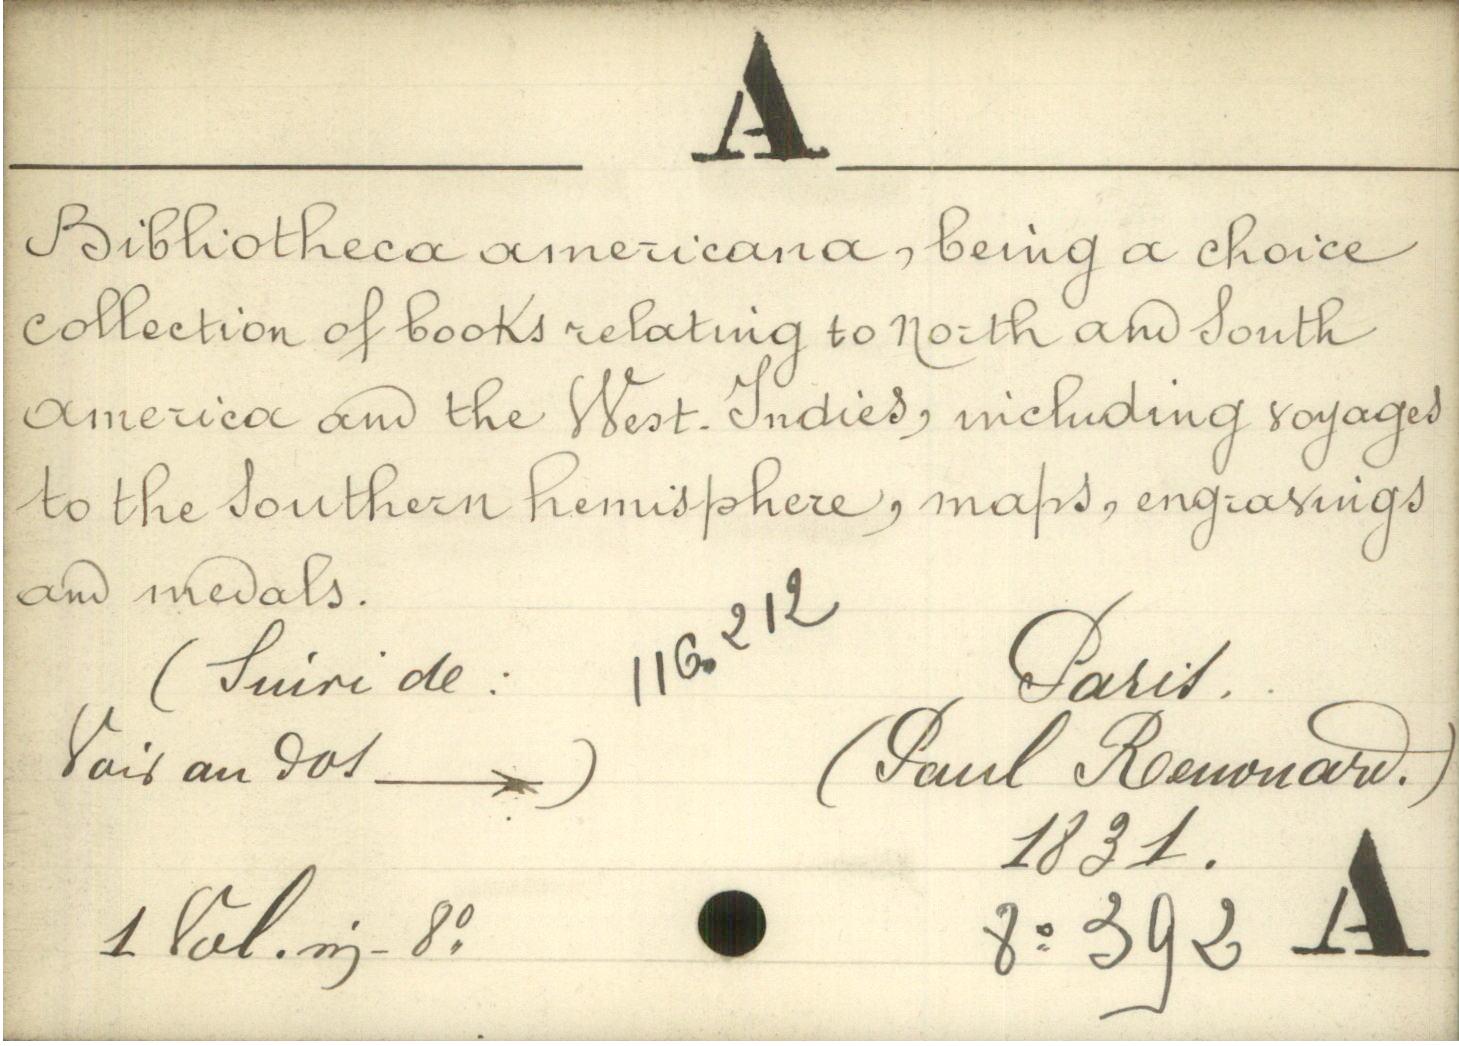 A
Bibliotheca americana, being a choice
collection of books relating to North and South
america and the West-Indies, including voyages
to the Southern hemisphere, maps, engravings
and medals.
(Suivi de : 116.212 Paris.
Voir au dos ) (Paul Renouard.)
1831.
1 Vol. in-8º 8º 392 A